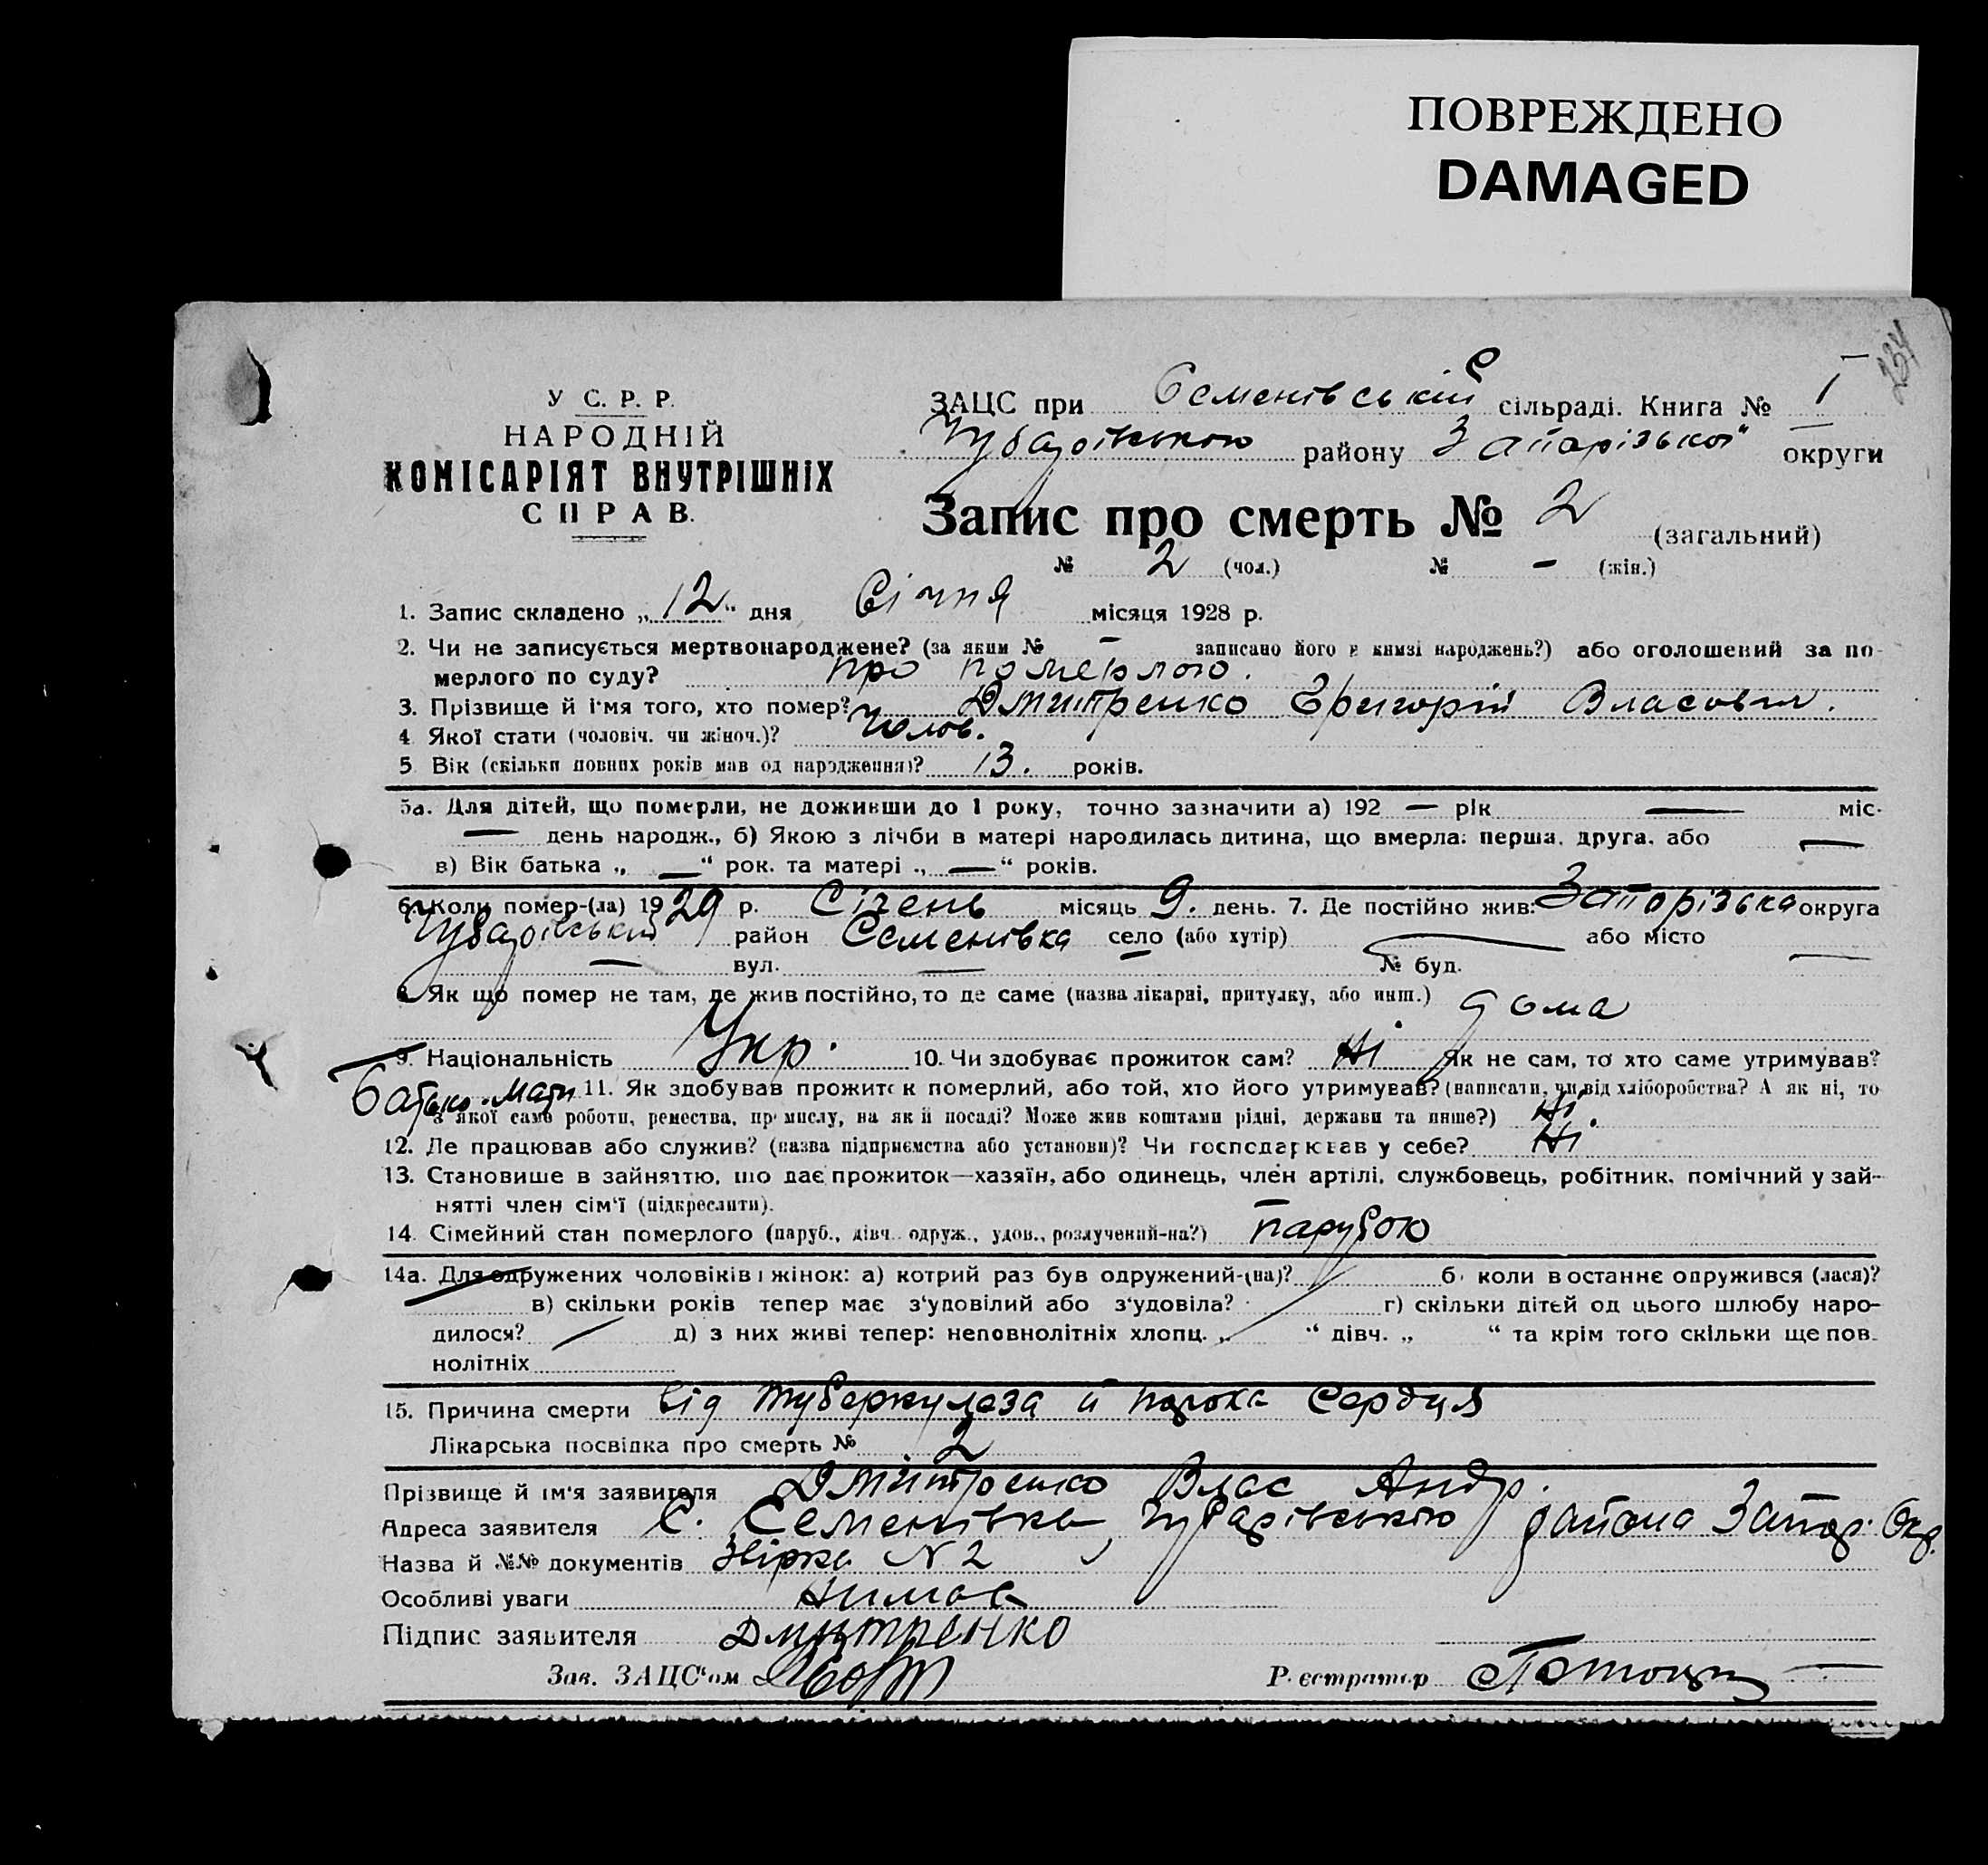 ПОВРЕЖДЕНО
DAMAGED
234
У С. Р. Р.
НАРОДНІЙ
КОМІСАРІЯТ ВНУТРІШНІХ
СПРАВ.
ЗАЦС при Семенівській сільраді. Книга № 1
Чубарівського району Запарізької округи
Запис про смерть № 2 (загальний)
№ 2 (чол.) № - (жін.)
1. Запис складено „12" дня Січня місяця 1928 р.
2. Чи не записується мертвонароджене? (за яким № - записано його в книзі народжень?) або оголошений за по-
мерлого по суду? про померлого.
3. Прізвище й ім'я того, хто помер? Дмитренко Григорій Власович.
4. Якої стати (чоловіч. чи жіноч.)? Чолов.
5. Вік (скільки повних років мав од народження)? 13. років.
5а. Для дітей, що померли, не доживши до 1 року, точно зазначити а) 192 — рік — міс.
— день народж., б) Якою з лічби в матері народилась дитина, що вмерла: перша, друга, або —
в) Вік батька „ — " рок. та матері „ — " років.
6. Коли помер-(ла) 1929 р. Січень місяць 9. день. 7. Де постійно жив: Запорізька округа
Чубарівський район Семенівка село (або хутір) — або місто
— вул. — № буд. —
8. Як що помер не там, де жив постійно, то де саме (назва лікарні, притулку, або инш.) дома
9. Національність Укр. 10. Чи здобуває прожиток сам? Ні Як не сам, то хто саме утримував?
Батько. Мати 11. Як здобував прожиток померлий, або той, хто його утримував? (написати, чи від хліборобства? А як ні, то
з якої саме роботи, ремества, промислу, на якій посаді? Може жив коштами рідні, держави та инше?) Ні.
12. Де працював або служив? (назва підприємства або установи)? Чи господарював у себе? Ні
13. Становище в зайняттю, що дає прожиток—хазяїн, або одинець, член артілі, службовець, робітник, помічний у зай-
нятті член сім'ї (підкреслити).
14. Сімейний стан померлого (паруб., дівч. одруж., удов., розлучений-на?) парубою
14а. Для одружених чоловіків і жінок: а) котрий раз був одружений-(на)? б) коли востаннє одружився (лася)?
в) скільки років тепер має з'удовілий або з'удовіла? г) скільки дітей од цього шлюбу наро-
дилося? д) з них живі тепер: неповнолітніх хлопц. „ " дівч. „ " та крім того скільки ще пов-
нолітніх
15. Причина смерти від туберкулеза и порока Сердця
Лікарська посвідка про смерть № 2
Прізвище й ім'я заявителя Дмитренко Влас Андр.
Адреса заявителя С. Семенівка, Чубарівського району Запор. Окр.
Назва й №№ документів Звірка N 2
Особливі уваги Нимає
Підпис заявителя Дмитренко
Зав. ЗАЦС'ом
Реєстратор